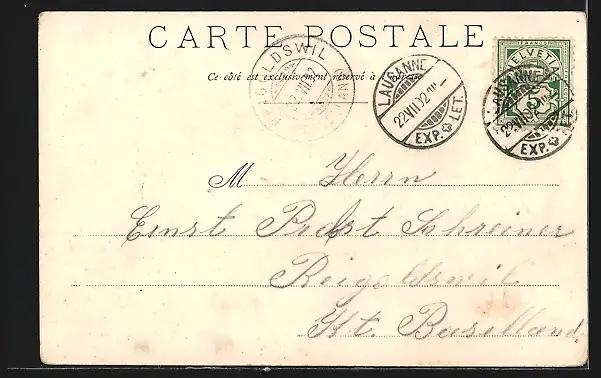 CARTE POSTALE
Ce côté est exclusivement réservé à l'adresse
REIGOLDSWIL
22 VII 02
LAUSANNE
22 VII 02
EXP. LET.
HELVETIA
5
LAUSANNE
22 VII 02
EXP. LET.
M Herrn
Ernst Probst Schreiner
Reigoldswil
Kt. Baselland.